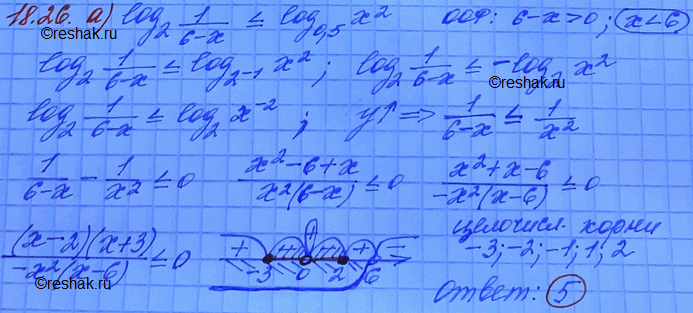 18.26. а) log₂ 1/(6-x) ≤ log₀,₅ x² ООФ: 6-x>0; x<6
©reshak.ru
log₂ 1/(6-x) ≤ log₂₋₁ x²; log₂ 1/(6-x) ≤ -log₂ x²
log₂ 1/(6-x) ≤ log₂ x⁻²; y↑ ⇒ 1/(6-x) ≤ 1/x²
1/(6-x) - 1/x² ≤ 0 (x²-6+x)/(x²(6-x)) ≤ 0 (x²+x-6)/(-x²(x-6)) ≤ 0
(x-2)(x+3)/(-x²(x-6)) ≤ 0
+ + + + -
-3 0 2 6
целочисл. корни
-3; -2; -1; 1; 2
ответ: 5
©reshak.ru
©reshak.ru